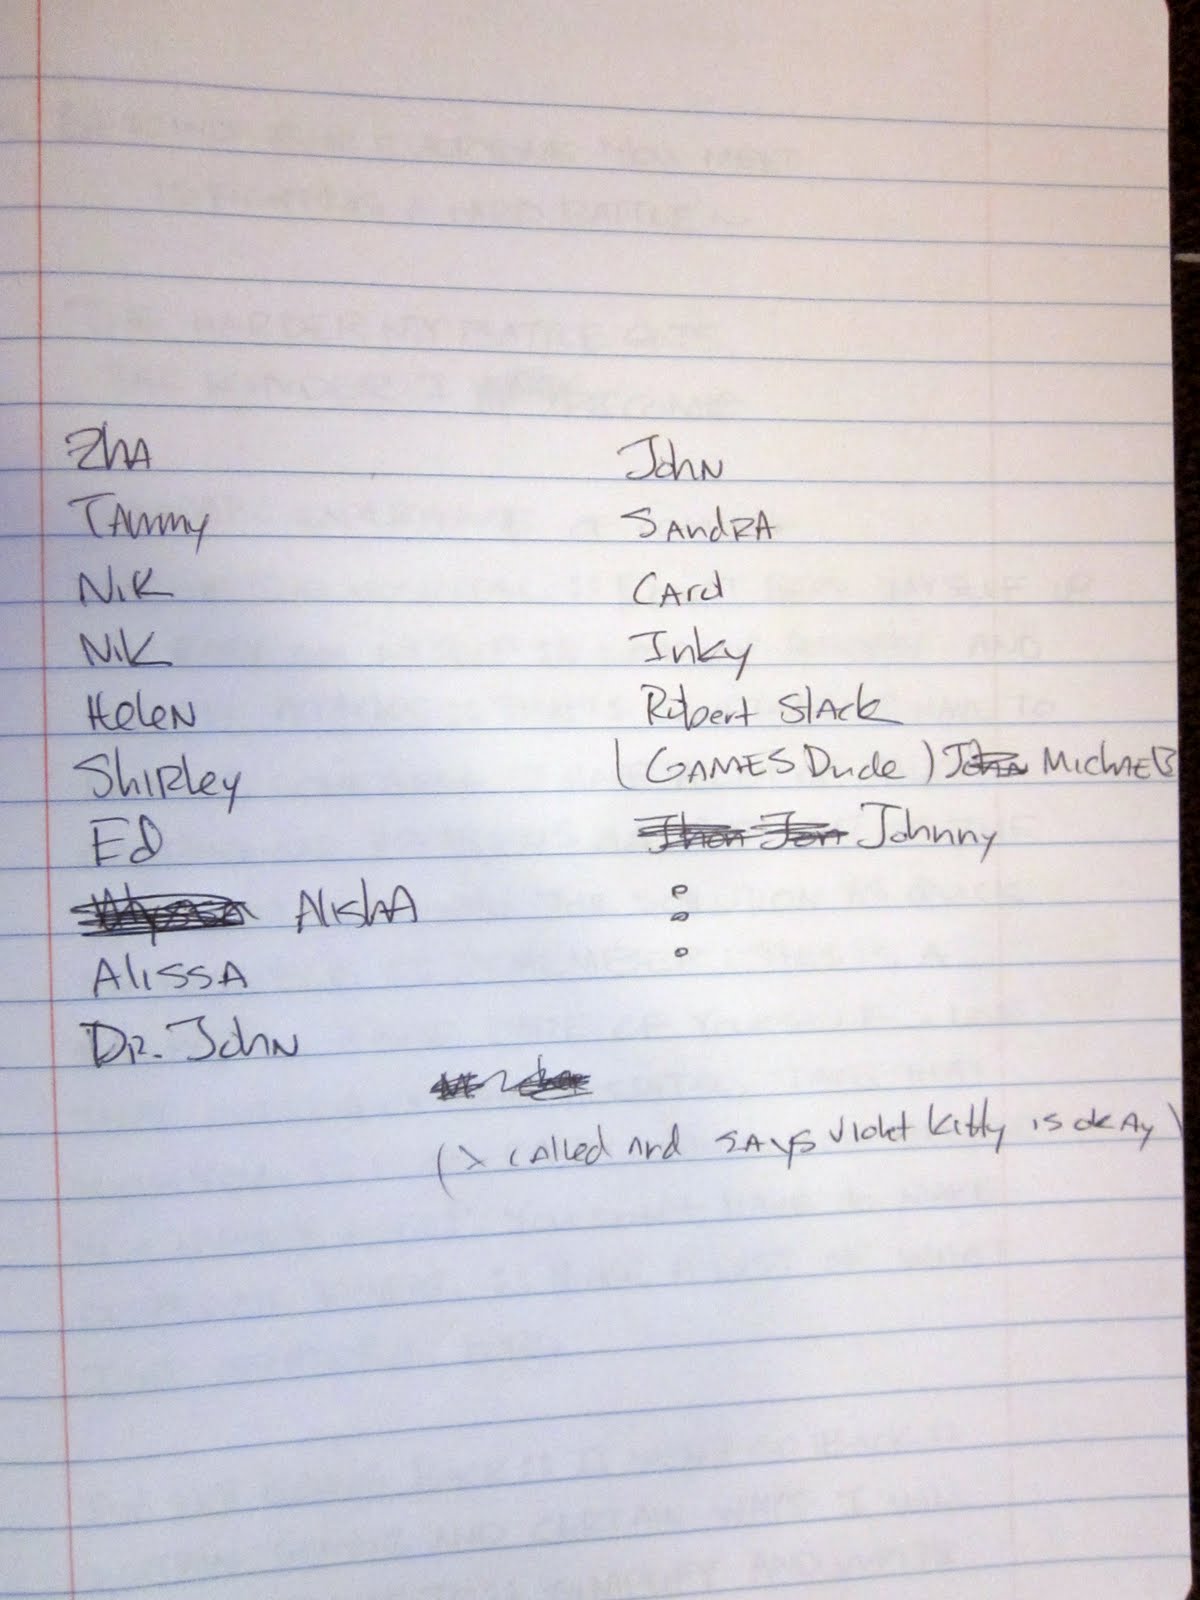 ZhA
TAmmy
NiK
NiK
HeleN
ShiRley
Ed
AlishA
AlissA
DR. JohN
JohN
SAndRA
CArd
Inky
Robert SlAck
(GAMES Dude) John MichaEl
Jhon Jon Johnny
(> cAlled And SAYS Violet kitty is okAy)